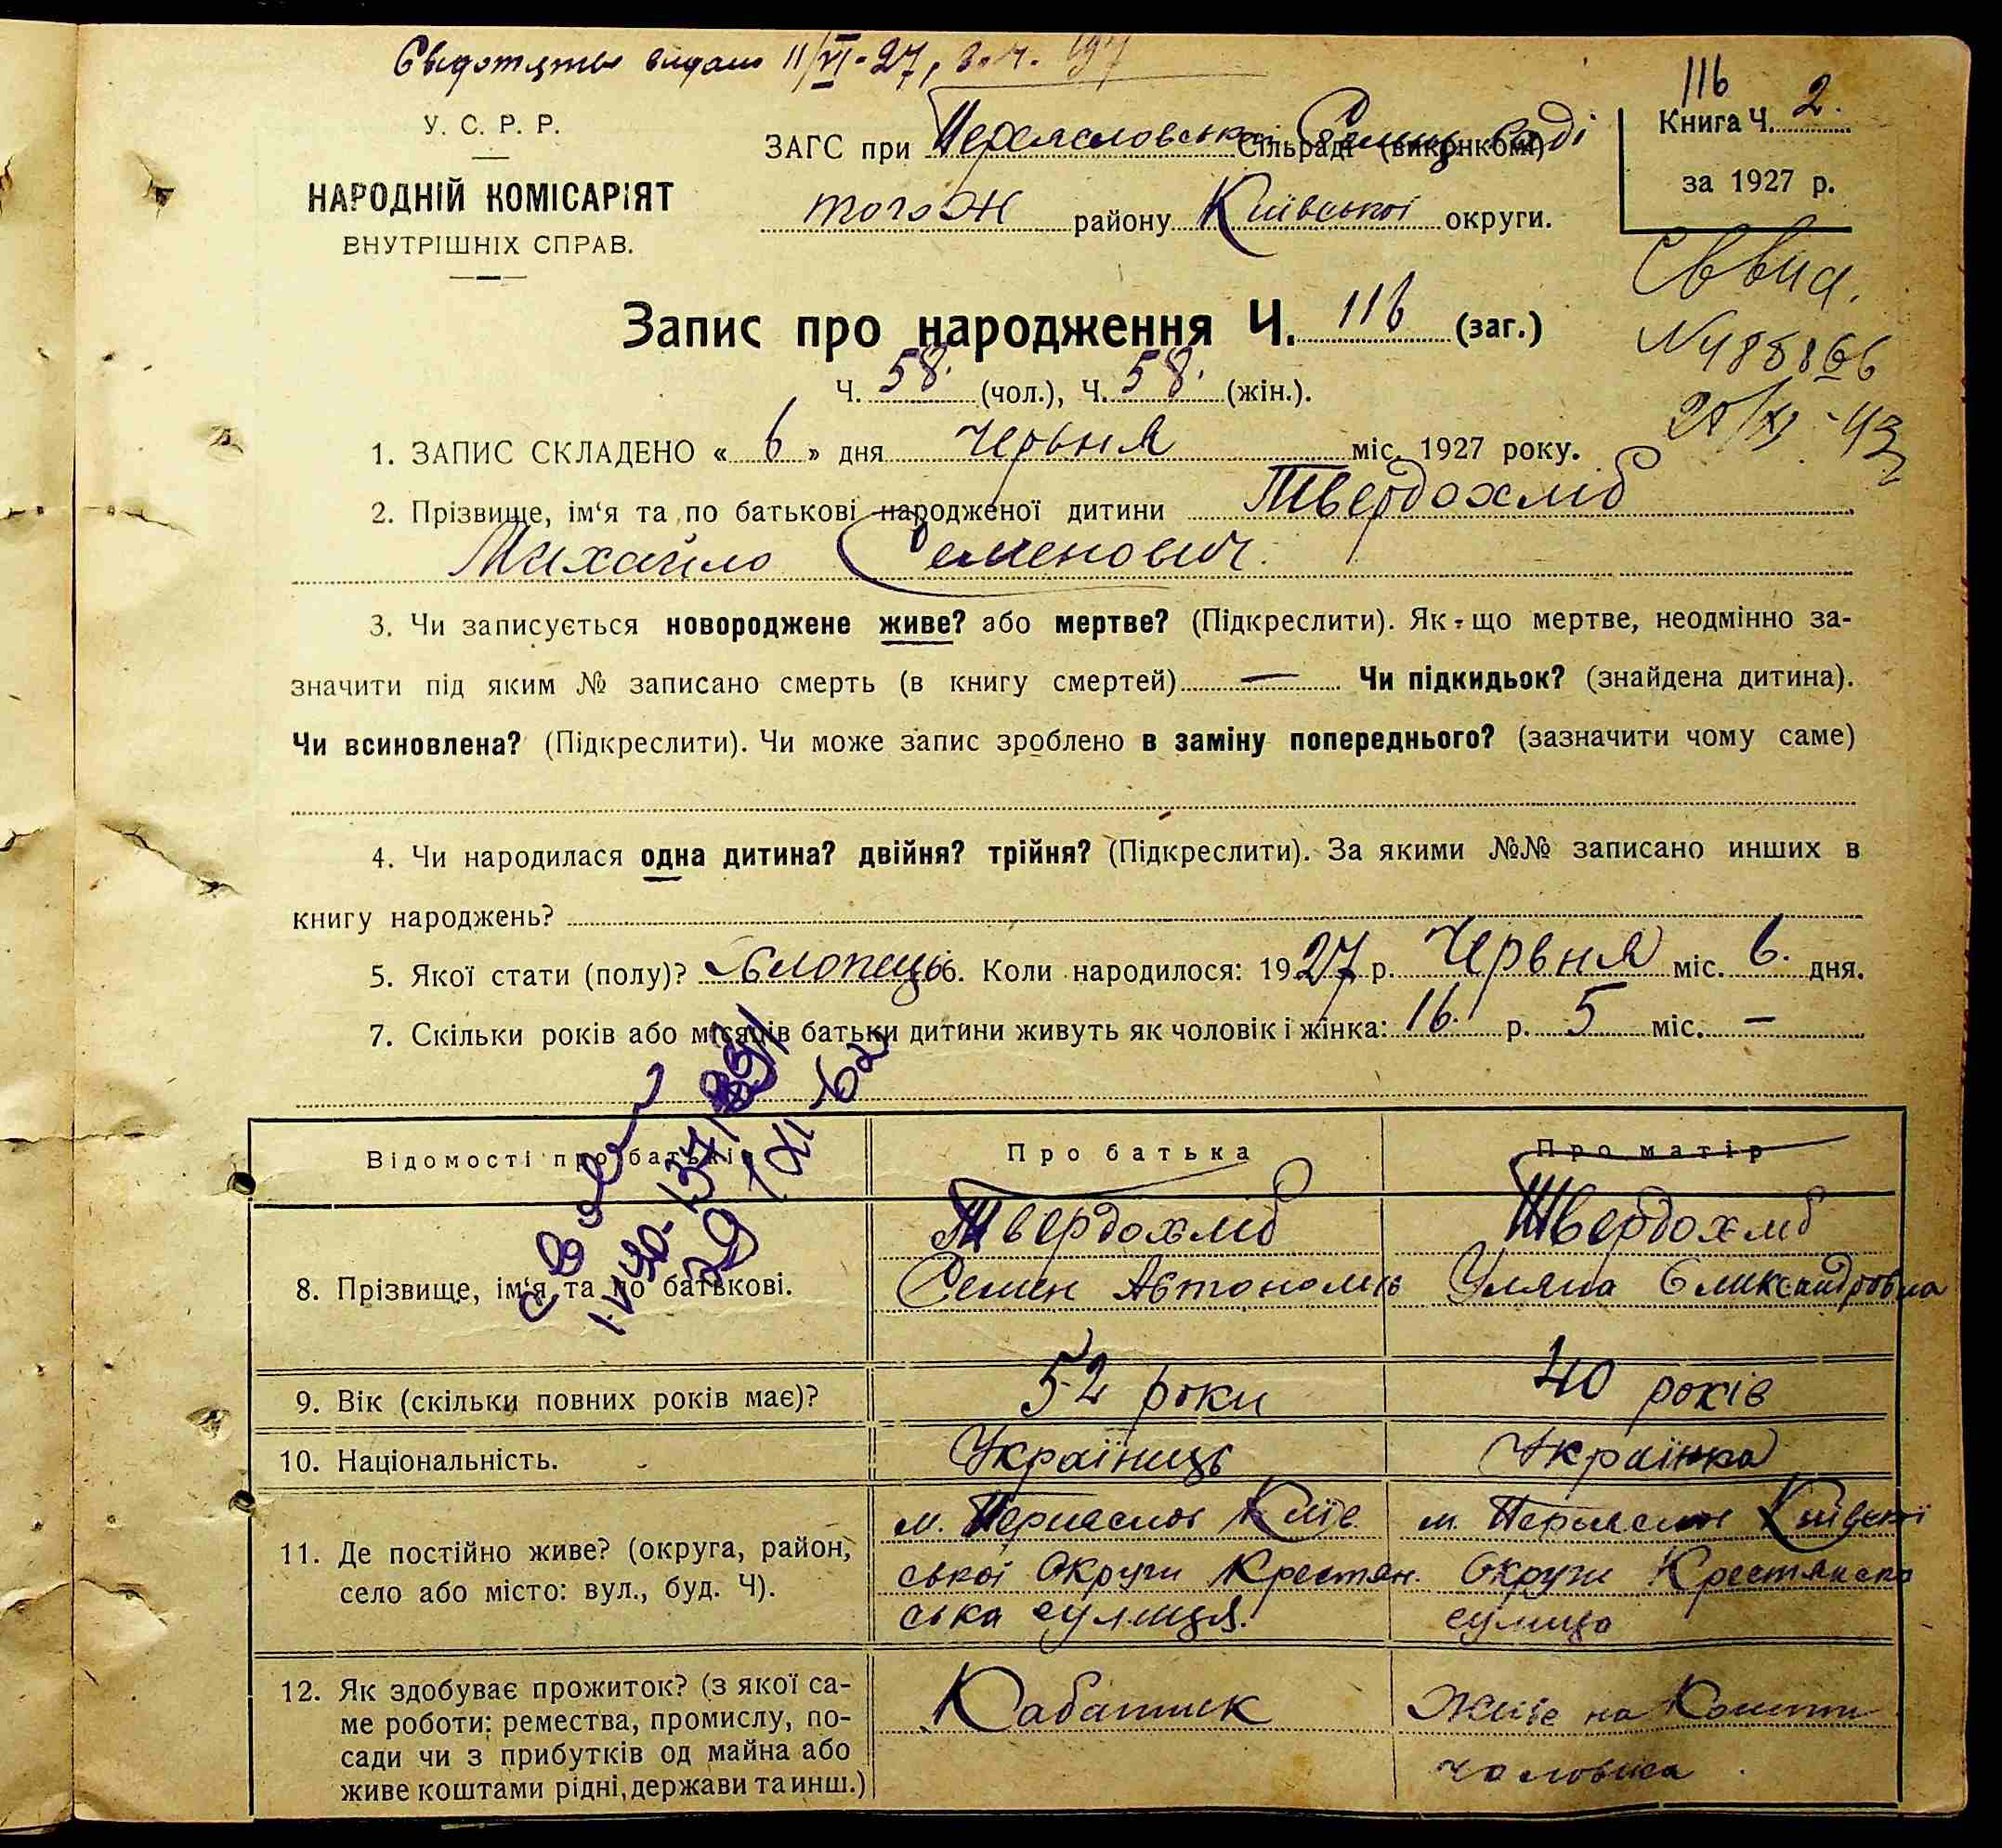 Свідотцтво видано 11/VI-27, з.ч. 197
116
У. С. Р. Р.
НАРОДНІЙ КОМІСАРІЯТ
ВНУТРІШНІХ СПРАВ.
ЗАГС при Переясловські Сільраді (виконкомі) Раді
того ж району Київської округи.
Книга Ч. 2.
за 1927 р.
Запис про народження Ч. 116 (заг.)
Ч. 58. (чол.), Ч. 58. (жін.).
1. ЗАПИС СКЛАДЕНО « 6 » дня Червня міс. 1927 року.
2. Прізвище, ім'я та по батькові народженої дитини Твердохліб
Михайло Семенович.
3. Чи записується новороджене живе? або мертве? (Підкреслити). Як-що мертве, неодмінно за-
значити під яким № записано смерть (в книгу смертей) — Чи підкидьок? (знайдена дитина).
Чи всиновлена? (Підкреслити). Чи може запис зроблено в заміну попереднього? (зазначити чому саме)
4. Чи народилася одна дитина? двійня? трійня? (Підкреслити). За якими №№ записано инших в
книгу народжень?
5. Якої стати (полу)? Хлопець 6. Коли народилося: 1927 р. Червня міс. 6. дня.
7. Скільки років або місяців батьки дитини живуть як чоловік і жінка: 16 р. 5 міс. —
Відомості про батьків Про батька Про матір
8. Прізвище, ім'я та по батькові. Твердохліб Семен Автономів Твердохліб Уляна Олександровна
9. Вік (скільки повних років має)? 52 роки 40 років
10. Національність. Україниць Українка
11. Де постійно живе? (округа, район,
село або місто: вул., буд. Ч).
м. Переяслов Київ
ської Округи Крестян.
ська вулиця.
м. Переяслов Київської
Округи Крестянска
вулиця
12. Як здобуває прожиток? (з якої са-
ме роботи: ремества, промислу, по-
сади чи з прибутків од майна або
живе коштами рідні, держави та инш.)
Кабатник
Живе на Кошти
чоловіка